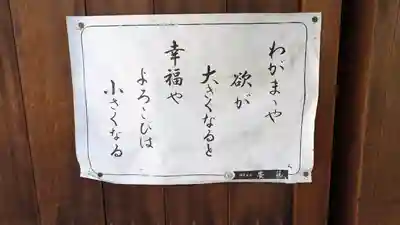 わがまゝや
欲が
大きくなると
幸福や
よろこびは
小さくなる